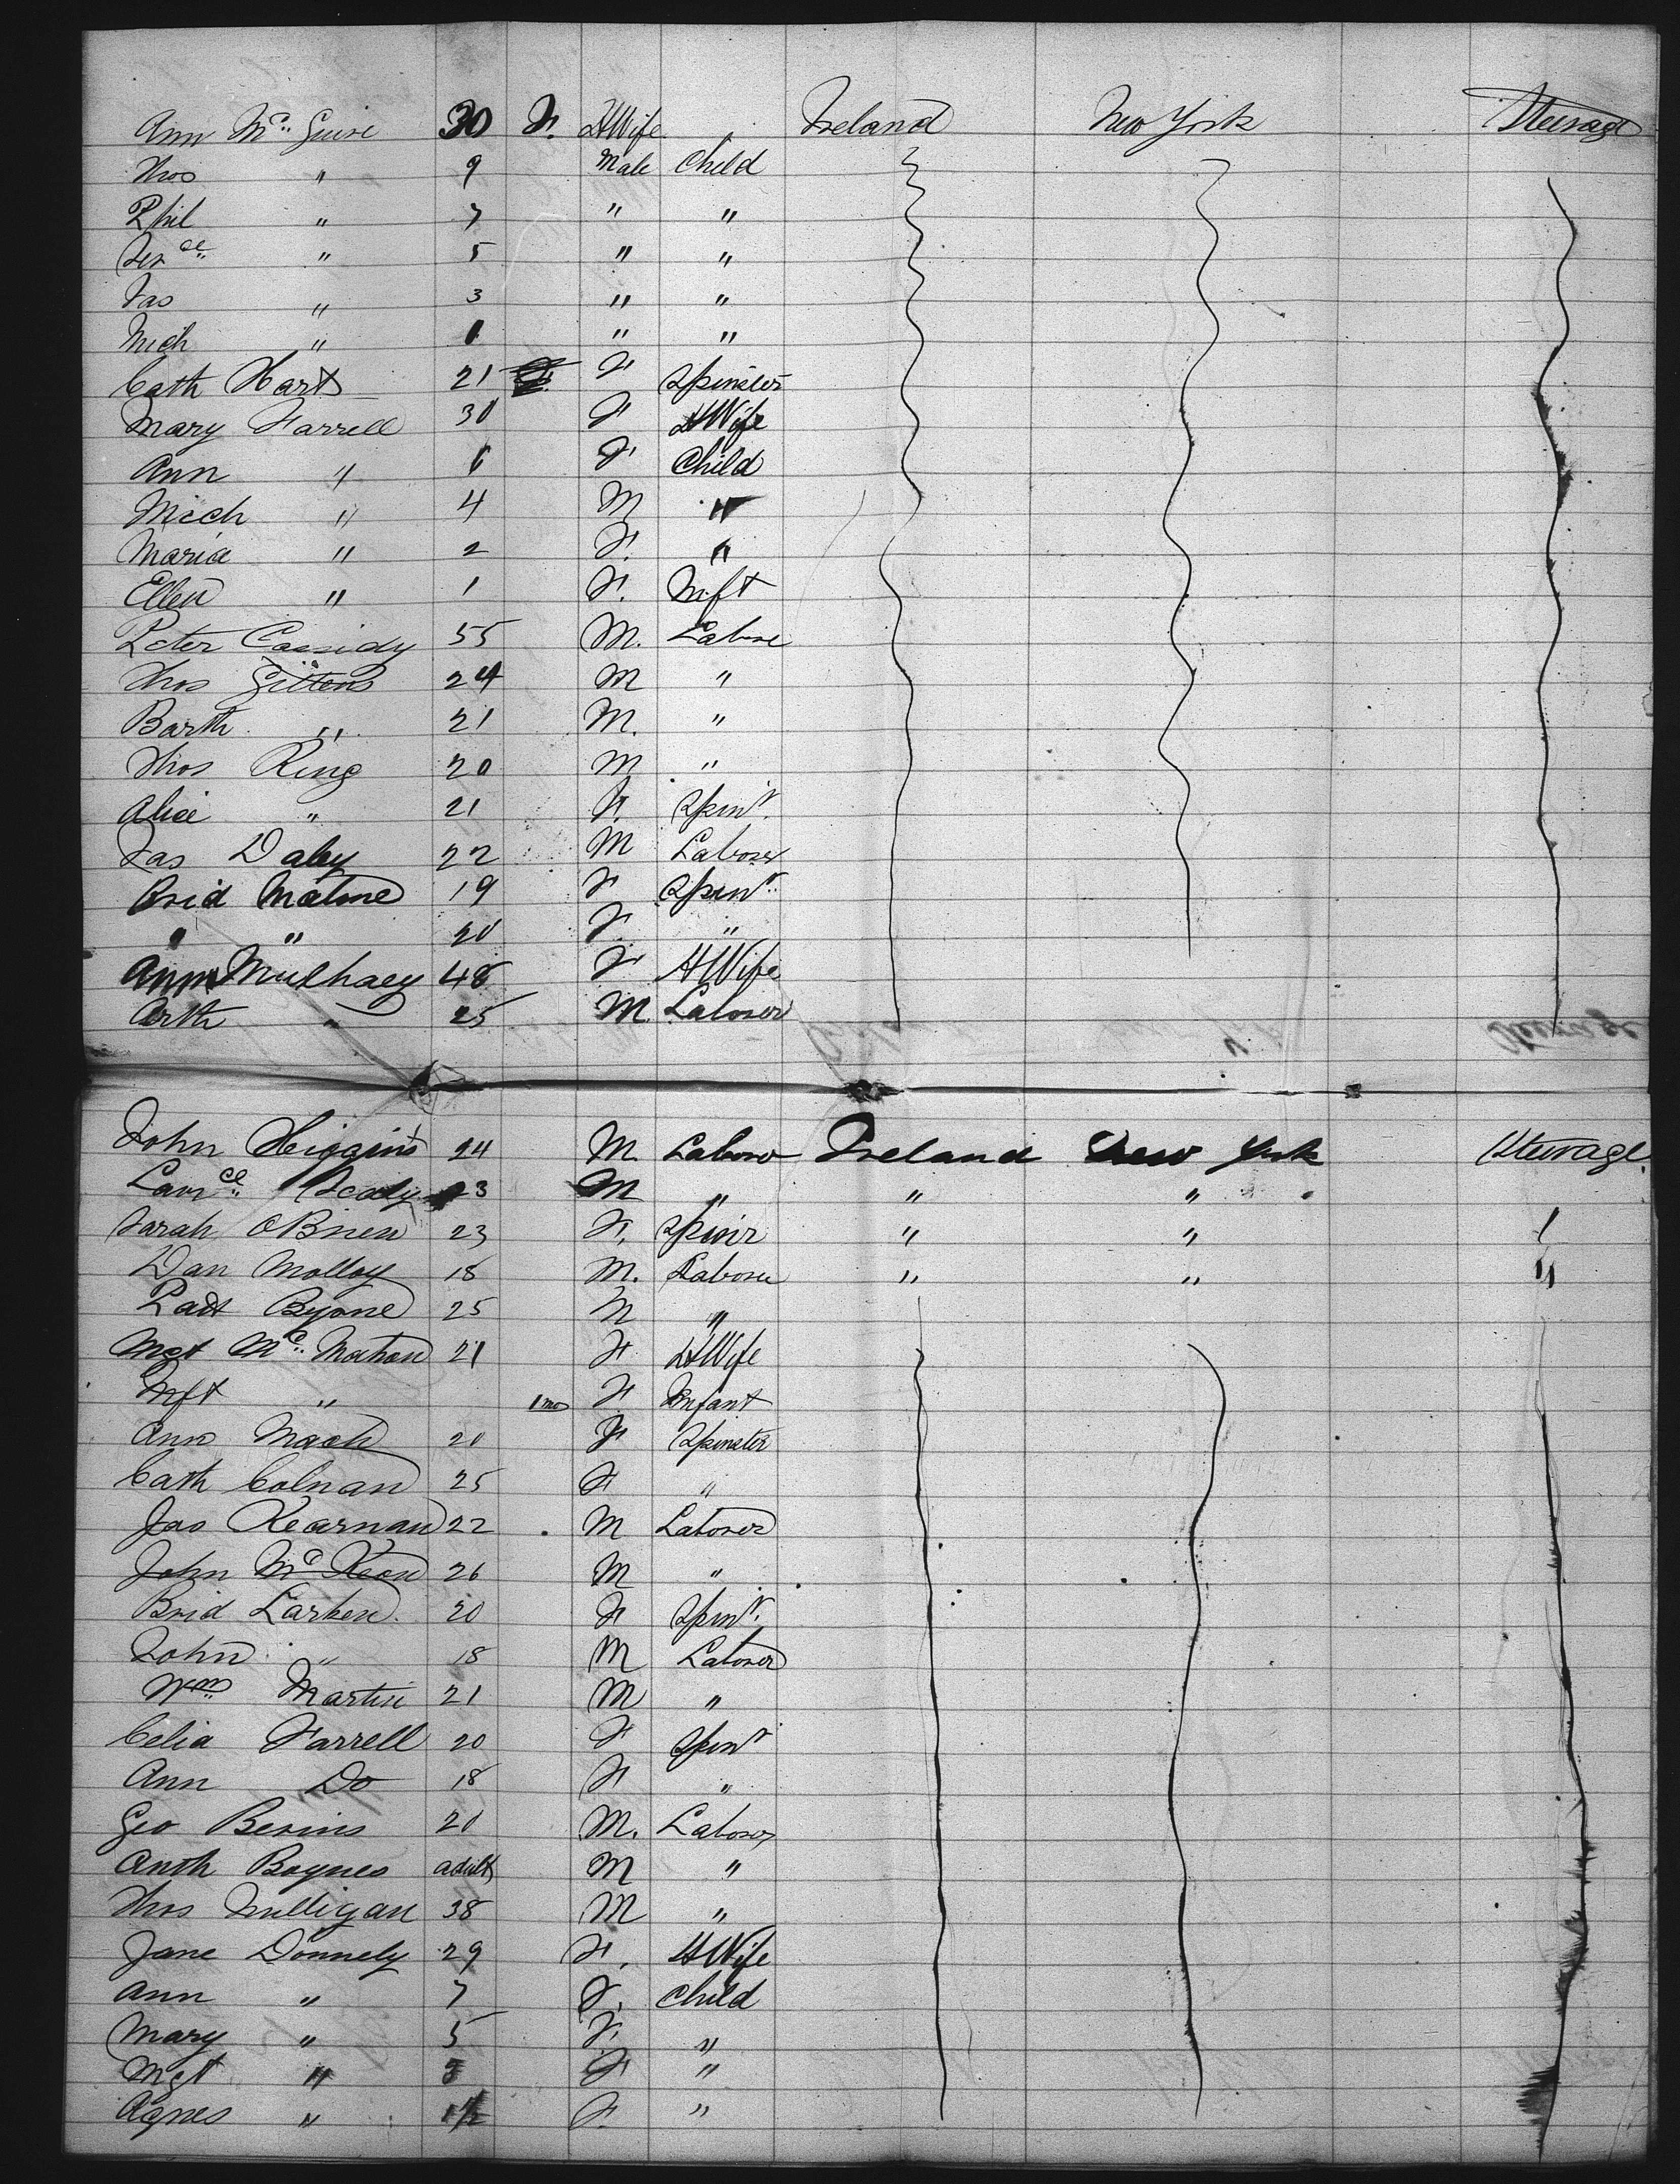 Ann Mc Guire 30 F. HWife Ireland New York Steerage
Thos " 9 Male Child
Phil " 7 " "
Terce " 5 " "
Jas " 3 " "
Mich " 1 " "
Cath Hart 21 F Spinster
Mary Farrell 30 F HWife
Ann " 6 F Child
Mich " 4 M "
Maria " 2 F. "
Ellen " 1 F. Inft
Peter Cassidy 55 M. Labore
Thos Gittens 24 M "
Barth " 21 M. "
Thos King 20 M "
Alice " 21 F. Spinr.
Jas Daley 22 M Laborer
Brid Malone 19 F Spinr.
" " 20 F. "
Ann Mulhaey 48 F HWife
Arth " 25 M. Laborer
John Higgins 24 M. Laborer Ireland New York Steerage
Lawce 23 M " " "
Sarah OBrien 23 F. Spinr " " "
Dan Molloy 18 M. Laborer " " "
Padt Byrne 25 M "
Mgt Mc Mahon 21 F HWife
Inft " 1 mo F Infant
Ann Mack 20 F Spinster
Cath Colnan 25 F "
Jas Kearnan 22 M Laborer
John Mc Keon 26 M "
Brid Larken 20 F Spinr.
John " 18 M Laborer
Wm Martin 21 M "
Celia Farrell 20 F Spinr
Ann Do 18 F "
Geo Bevins 20 M. Laborer
Anth Boynes adult M "
Thos Mulligan 38 M "
Jane Donnely 29 F. HWife
Ann " 7 F. Child
Mary " 5 F. "
Mgt " 3 F "
Agnes " 1/2 F. "